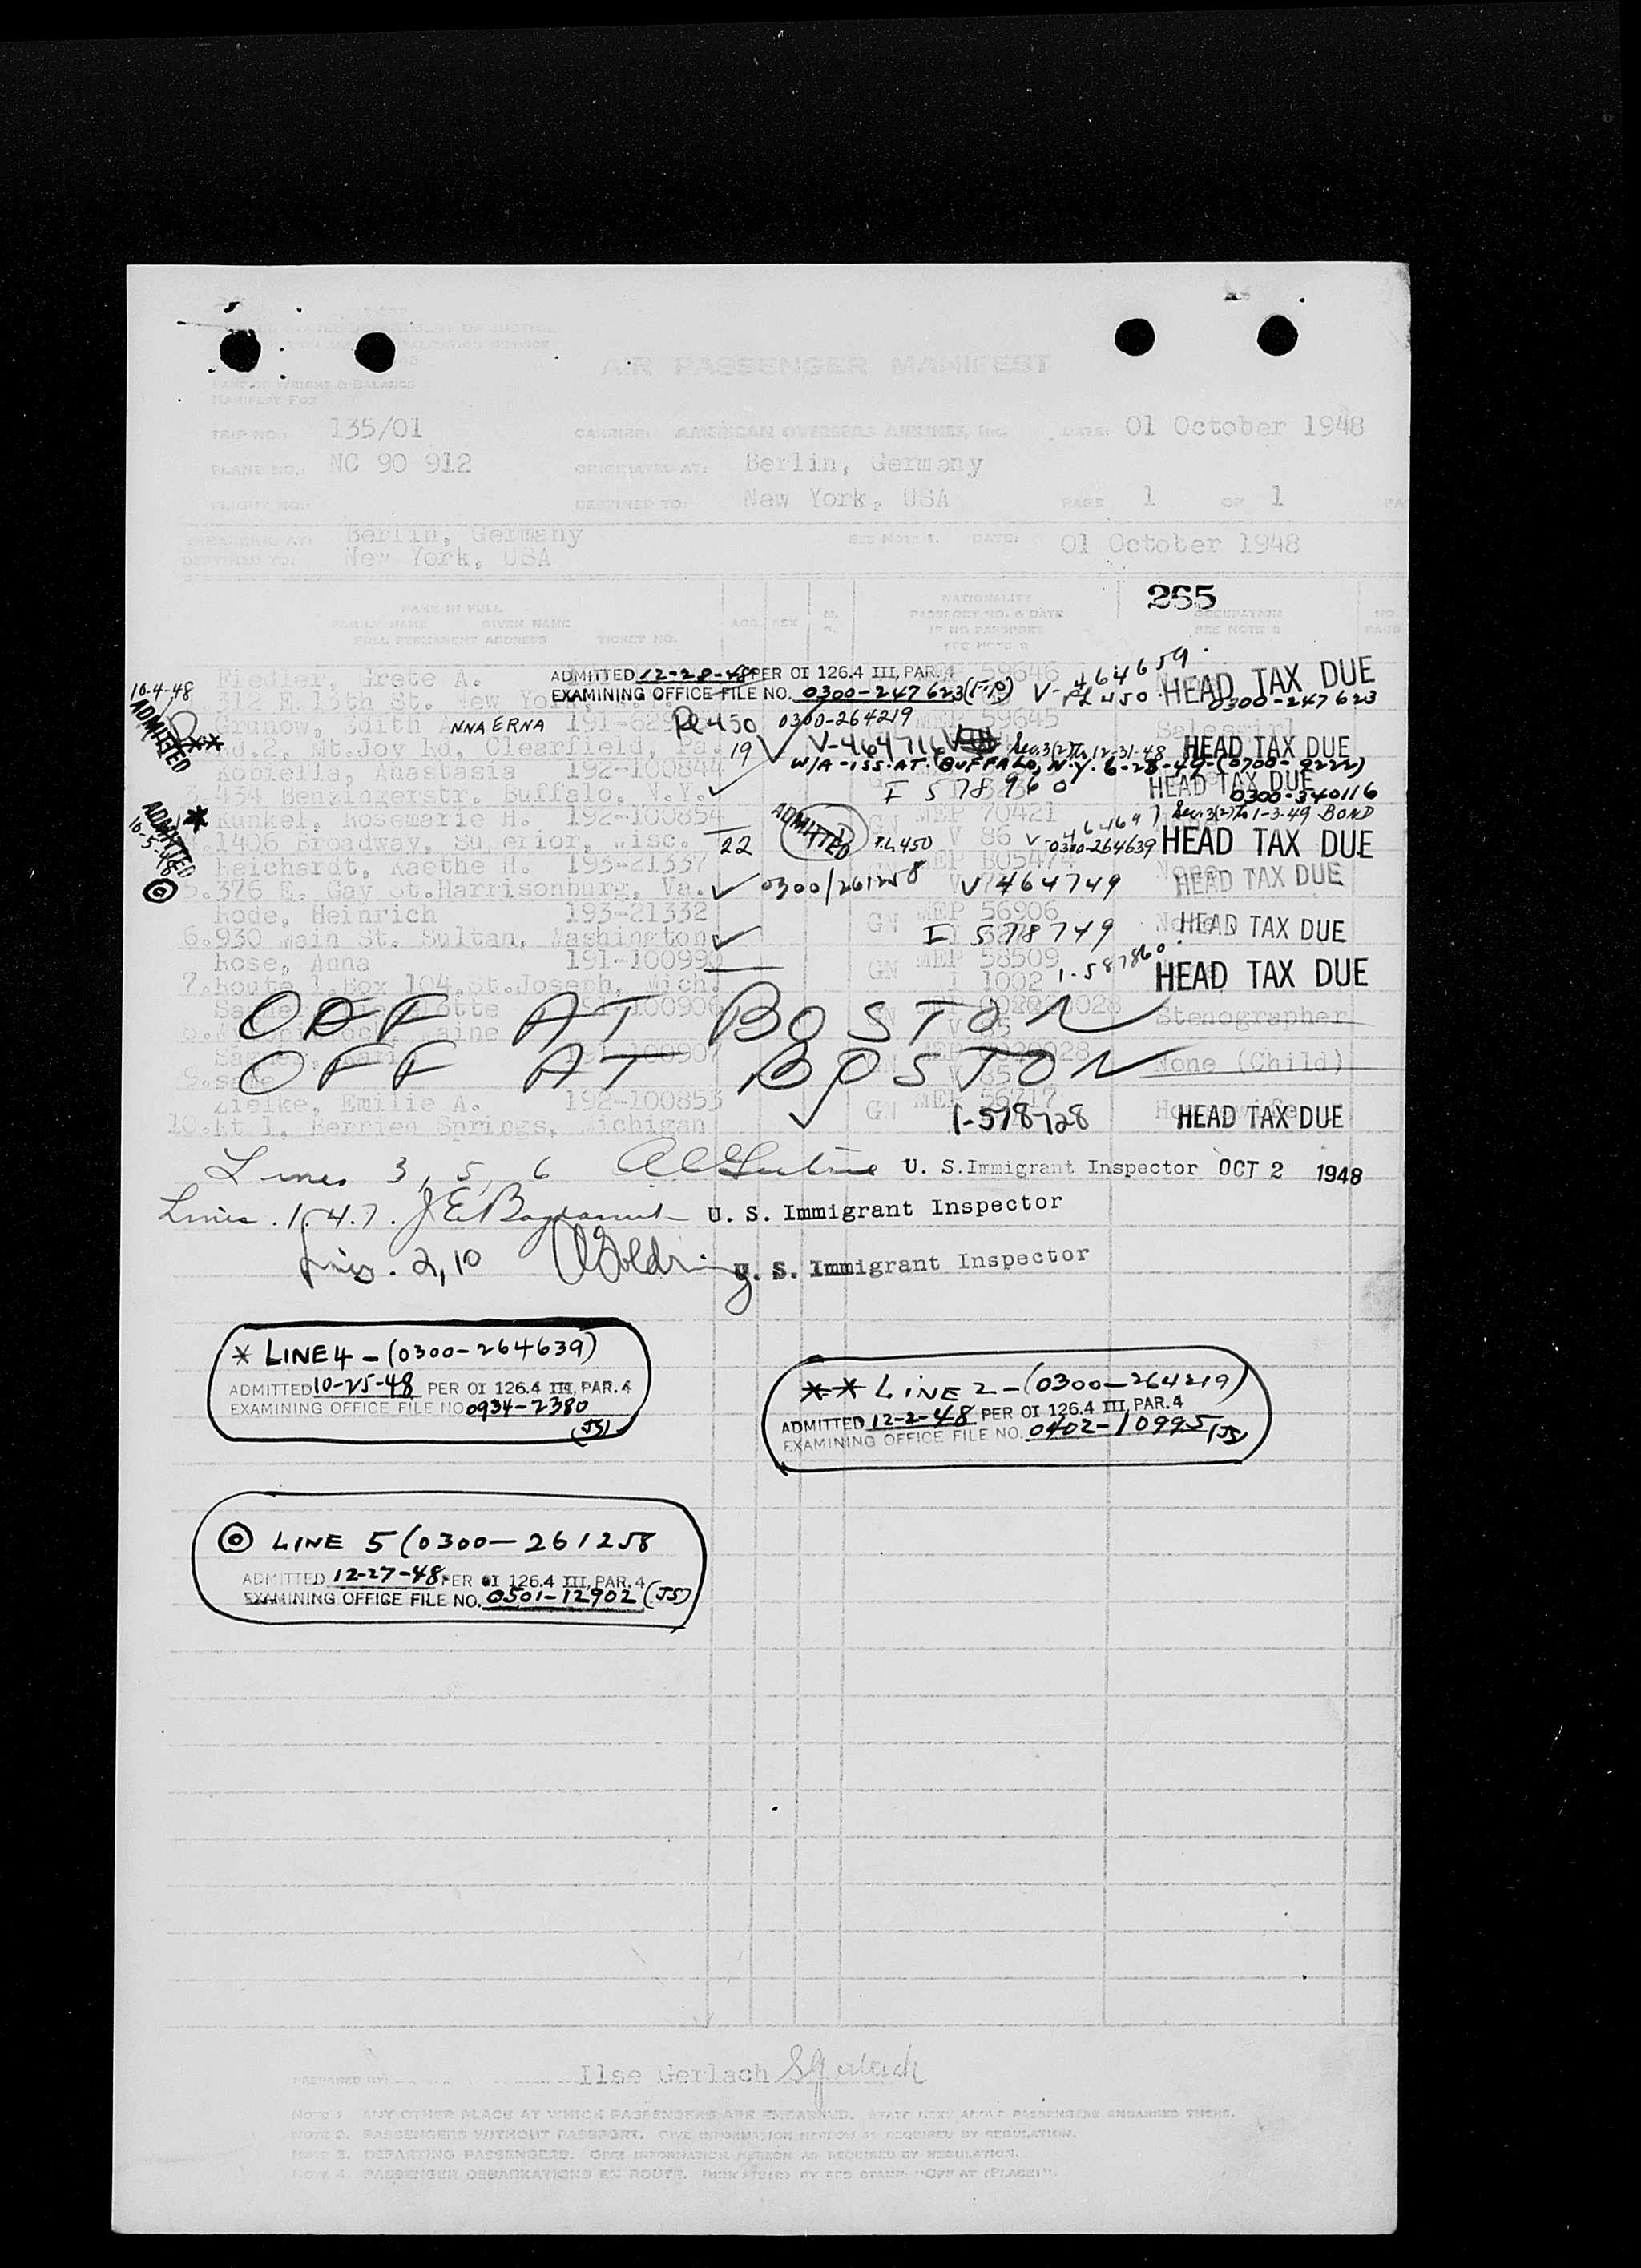 UNITED STATES DEPARTMENT OF JUSTICE
IMMIGRATION AND NATURALIZATION SERVICE
AIR PASSENGER MANIFEST
PART OF WEIGHT & BALANCE
MANIFEST FOR
TRIP NO.: 135/01 CARRIER: AMERICAN OVERSEAS AIRLINES, Inc. DATE: 01 October 1948
PLANE NO.: NC 90 912 ORIGINATED AT: Berlin, Germany
FLIGHT NO.: DESTINED TO: New York, USA PAGE 1 OF 1
EMBARKING AT: Berlin, Germany SEE NOTE 1. DATE: 01 October 1948
DESTINED TO: New York, USA
265
NAME IN FULL NATIONALITY
FAMILY NAME GIVEN NAME AGE SEX PASSPORT NO. & DATE OCCUPATION NO.
FULL PERMANENT ADDRESS TICKET NO. IF NO PASSPORT SEE NOTE 2 BAGS
SEE NOTE 2
Fiedler, Grete A. ADMITTED 12-28-48 PER OI 126.4 III, PAR. 4 59646 V-464659
10-4-48 312 E.13th St. New York EXAMINING OFFICE FILE NO. 0300-247623 PL 450 HEAD TAX DUE 0300-247623
ADMITTED Grunow, Edith ANNA ERNA 191-629 PL 450 0300-264219 MEP 59645 Salesgirl
** Rd.2, Mt.Joy Rd, Clearfield, Pa. 19 V-464716 Sec.3(2) to 12-31-48 HEAD TAX DUE
W/A-ISS. AT. BUFFALO, N.Y. 6-28-49-(0700-9222)
Kobiella, Anastasia 192-100844
3.434 Benzingerstr. Buffalo, N.Y. I 578960 HEAD TAX DUE 0300-340116
ADMITTED * Kunkel, Rosemarie H. 192-100854 ADMITTED MEP 70421 Sec.3(2) to 1-3-49 BOND
10-5-48 1406 Broadway, Superior, Wisc. 22 P.L.450 V 86 V-464697 0300-264639 HEAD TAX DUE
Reichardt, Kaethe H. 193-21337 MEP B05474 None
5.376 E. Gay St.Harrisonburg, Va. 0300/261258 V 464749 HEAD TAX DUE
Rode, Heinrich 193-21332 GN MEP 56906
6.930 Main St. Sultan, Washington I 578749 HEAD TAX DUE
Rose, Anna 191-100990 GN MEP 58509
7.Route 1,Box 104,St.Joseph, Mich. I 1002 1-587860 HEAD TAX DUE
OFF AT BOSTON 100906 Stenographer
OFF AT BOSTON 191-100907 None (Child)
Zielke, Emilie A. 192-100853 GN MEP 56717
10.Rt 1, Berrien Springs, Michigan 1-578728 Housewife HEAD TAX DUE
Lines 3, 5, 6 U. S. Immigrant Inspector OCT 2 1948
Lines. 1. 4. 7. U. S. Immigrant Inspector
Lines. 2, 10 U. S. Immigrant Inspector
* LINE 4 - (0300-264639)
ADMITTED 10-25-48 PER OI 126.4 III, PAR. 4
EXAMINING OFFICE FILE NO 0934-2380
(JS)
** LINE 2 - (0300-264219)
ADMITTED 12-2-48 PER OI 126.4 III, PAR. 4
EXAMINING OFFICE FILE NO. 0402-10995 (JS)
LINE 5 (0300-261258
ADMITTED 12-27-48 PER OI 126.4 III, PAR. 4
EXAMINING OFFICE FILE NO. 0501-12902 (JS)
PREPARED BY: Ilse Gerlach
NOTE 1 ANY OTHER PLACE AT WHICH PASSENGERS ARE EMBARKED. STATE NEXT ABOVE PASSENGERS EMBARKED THERE.
NOTE 2. PASSENGERS WITHOUT PASSPORT. GIVE INFORMATION HEREON AS REQUIRED BY REGULATION.
NOTE 3. DEPARTING PASSENGERS. GIVE INFORMATION HEREON AS REQUIRED BY REGULATION.
NOTE 4. PASSENGER DEBARKATIONS EN ROUTE. INDICATED BY RED STAMP "OFF AT (PLACE)".